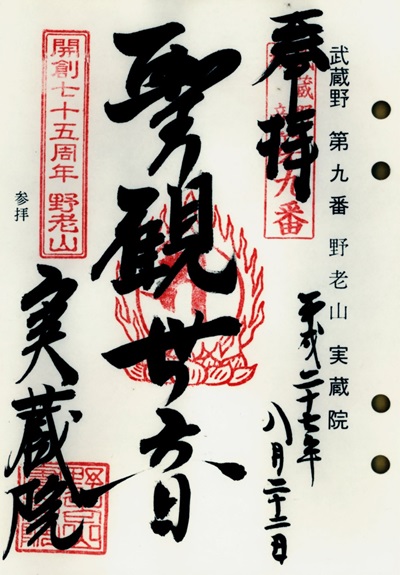 武蔵野 第九番 野老山 実蔵院
奉拝
九番
平成二十七年
八月二十二日
聖観世音
開創七十五周年 野老山
参拝
実蔵院